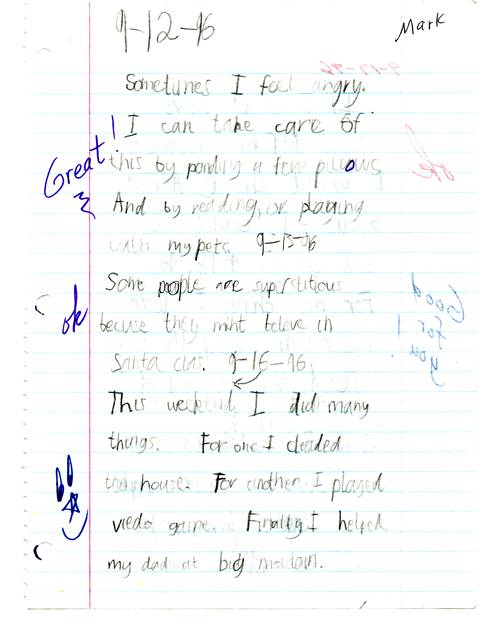 9-12-96
Mark
Sometimes I feel angry.
Great! I can take care of
this by ponding a few pillows
And by reading, or playing
with my pets 9-13-96
Some people are superstitious
ok becuse they mint beleve in
Santa clas. 9-16-96
This weekend I did many
things. For one I cleaded
the house. For another I played
viedo game. Finally I helped
my dad at big
Good
for
you!
ok
9-17-96